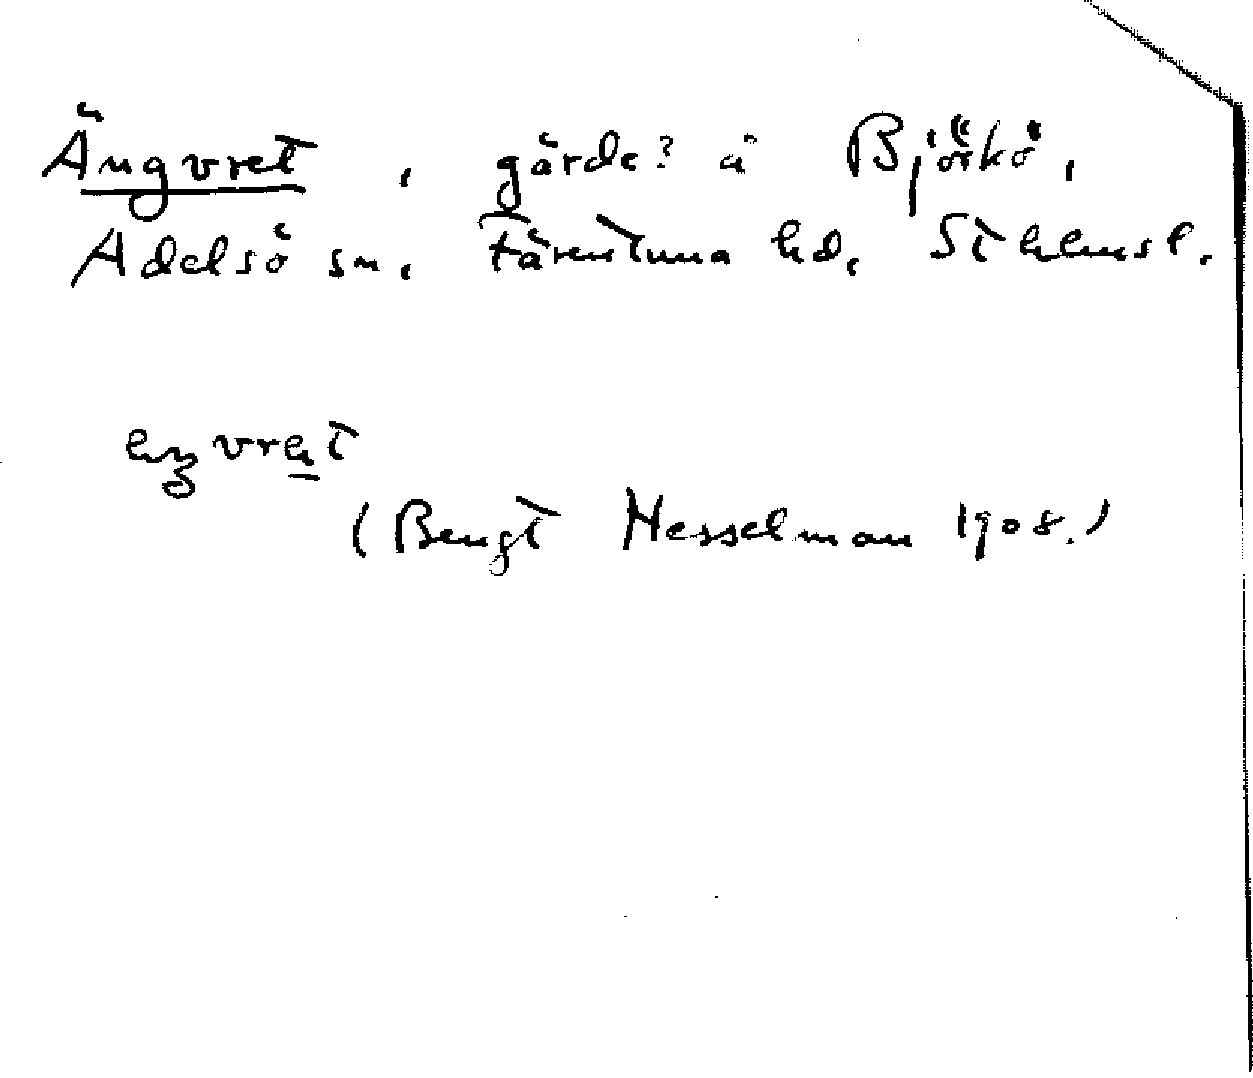 Ängvret, gärde? å Björkö,
Adelsö sn, Färentuna hd, Sthlmsl.
(Bengt Hesselman 1908.)